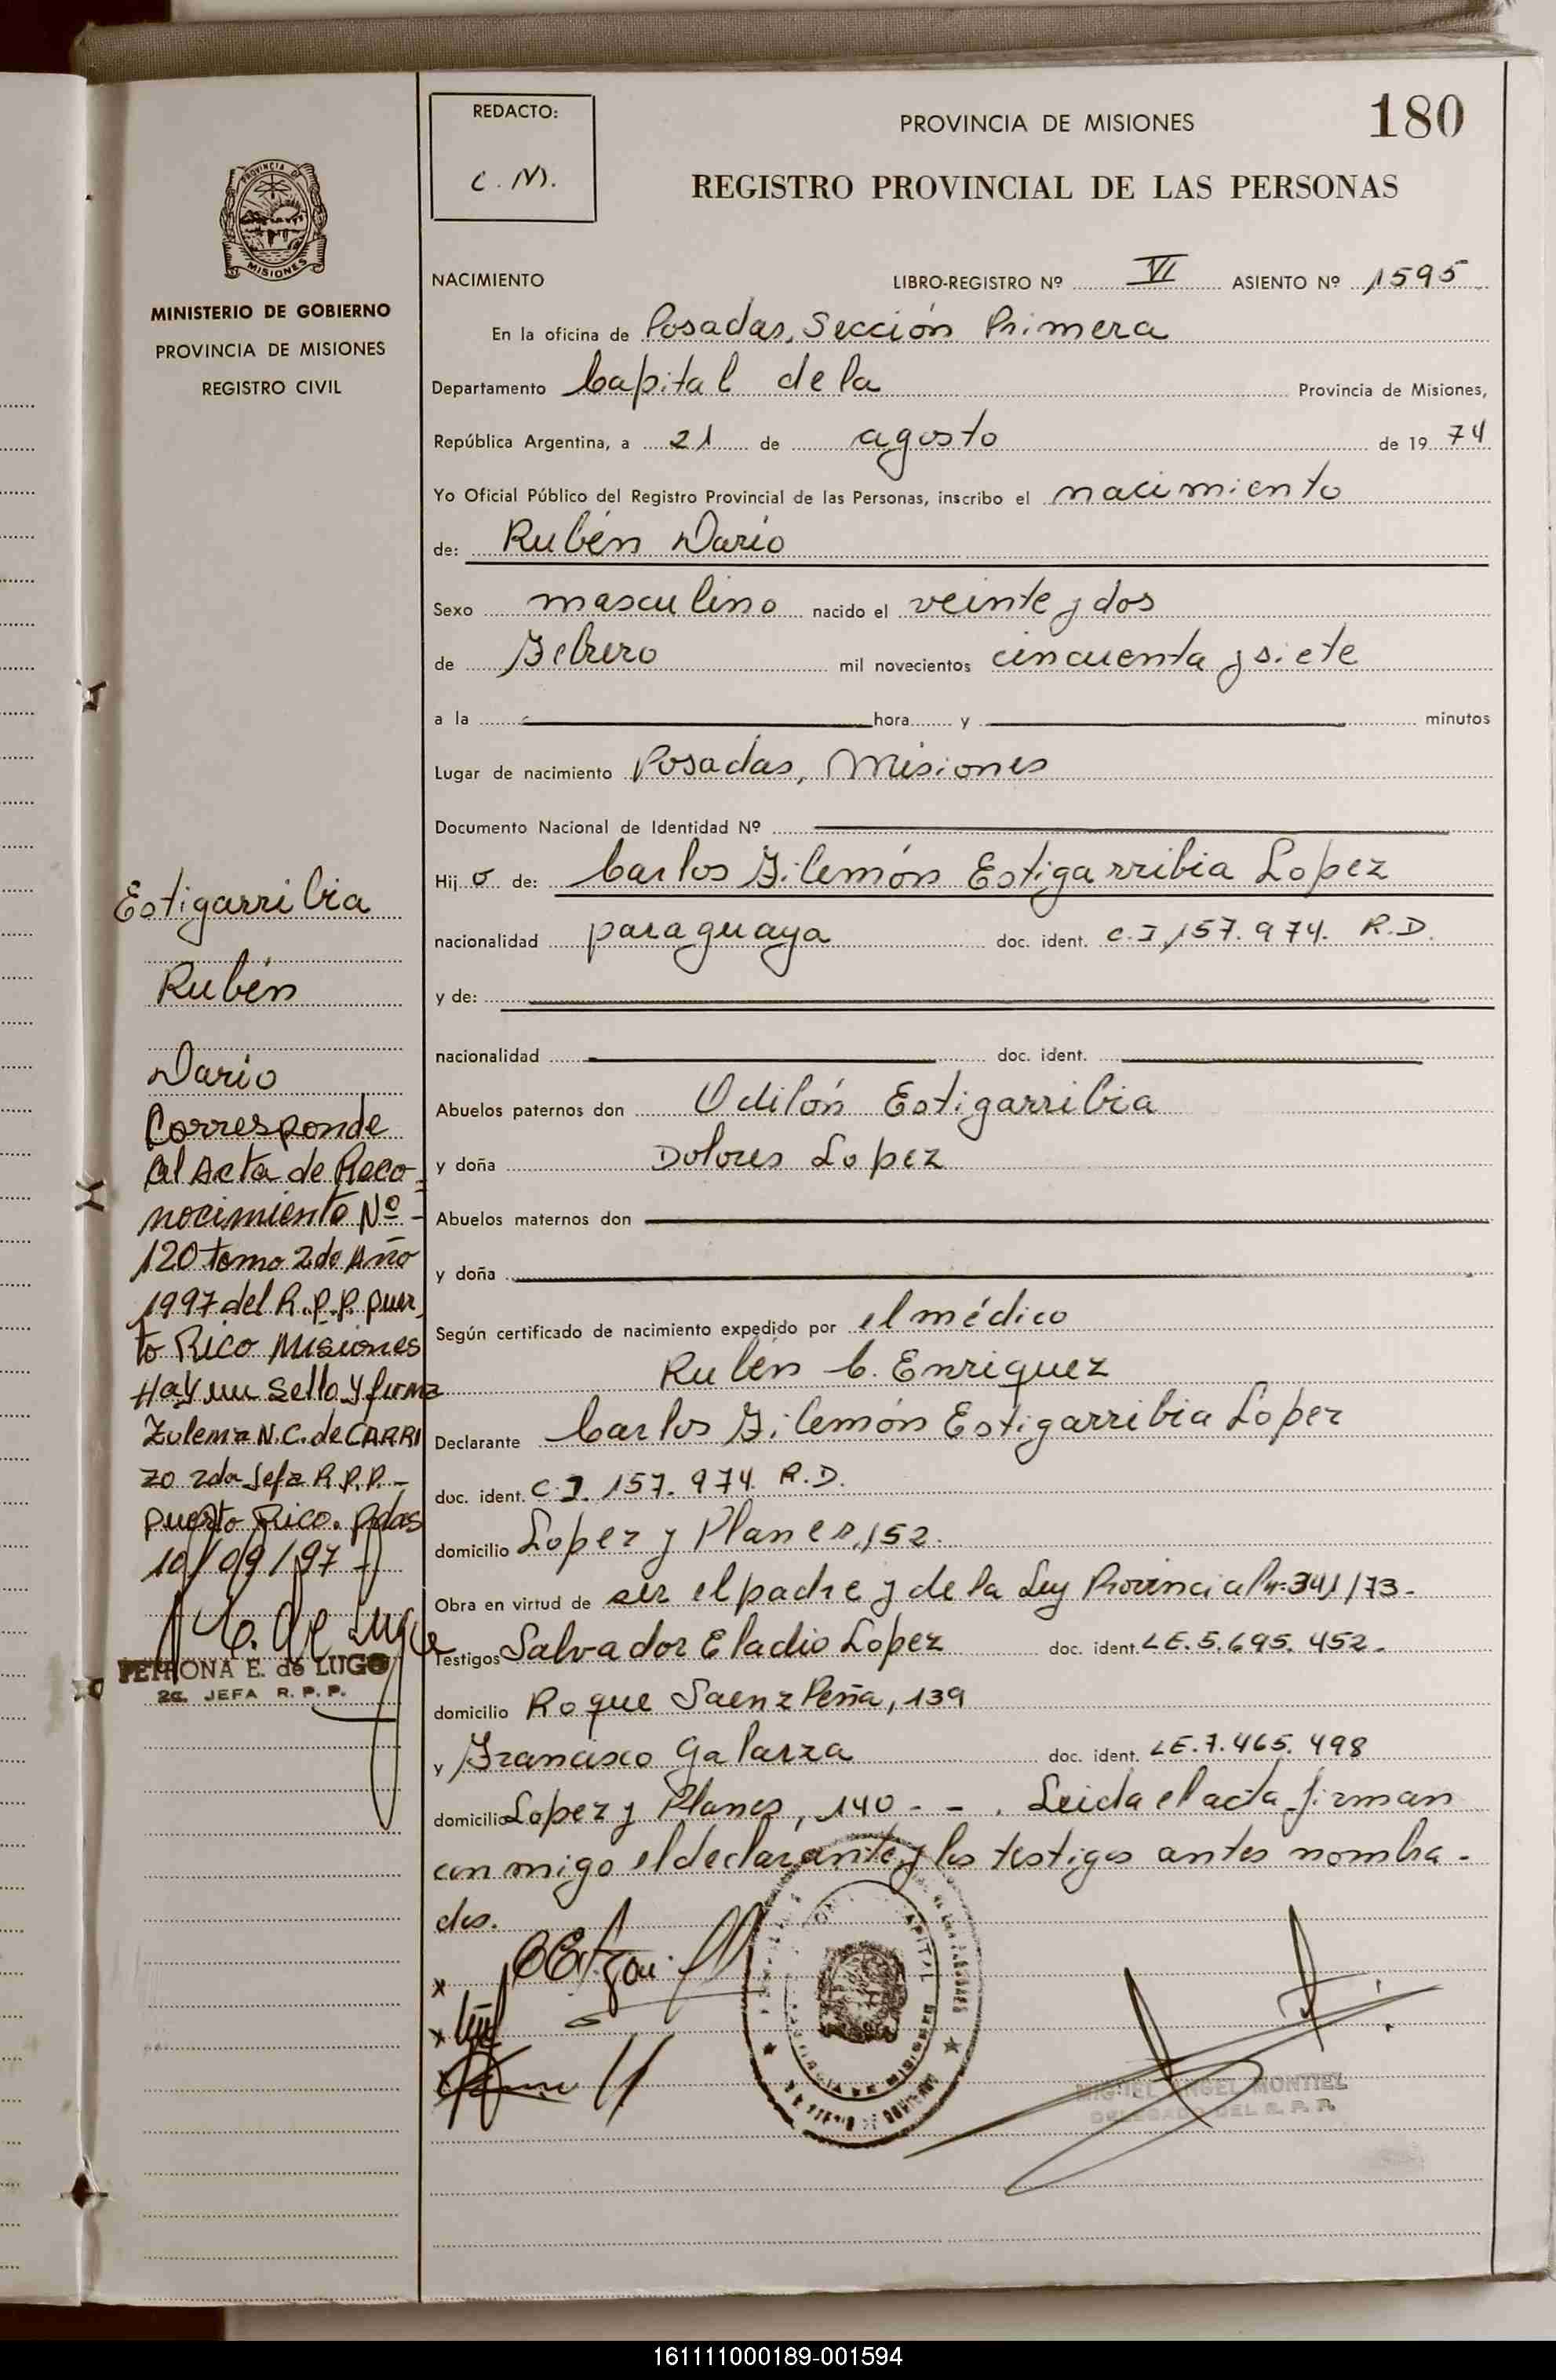 180
REDACTO:
C. M.
PROVINCIA DE MISIONES
REGISTRO PROVINCIAL DE LAS PERSONAS
PROVINCIA DE
MISIONES
MINISTERIO DE GOBIERNO
PROVINCIA DE MISIONES
REGISTRO CIVIL
NACIMIENTO LIBRO-REGISTRO Nº VI ASIENTO Nº 1595
En la oficina de Posadas, Sección Primera
Departamento Capital de la Provincia de Misiones,
República Argentina, a 21 de agosto de 19 74
Yo Oficial Público del Registro Provincial de las Personas, inscribo el nacimiento
de: Rubén Dario
Sexo masculino nacido el veinte y dos
de Febrero mil novecientos cincuenta y siete
a la hora y minutos
Lugar de nacimiento Posadas, Misiones
Documento Nacional de Identidad Nº
Hij o de: Carlos Filemón Estigarribia Lopez
nacionalidad paraguaya doc. ident. C.I 157.974. R.D.
y de:
nacionalidad doc. ident.
Abuelos paternos don Odilón Estigarribia
y doña Dolores Lopez
Abuelos maternos don
y doña
Según certificado de nacimiento expedido por el médico
Rubén C. Enriquez
Declarante Carlos Filemón Estigarribia Lopez
doc. ident. C.I. 157.974. R.D.
domicilio Lopez y Planes, 152.
Obra en virtud de ser el padre y de la Ley Provincial Nº 341/73-
Testigos Salvador Eladio Lopez doc. ident. LE. 5.695.452.
domicilio Roque Saenz Peña, 139
y Francisco Galarza doc. ident. LE. 7.465.498
domicilio Lopez y Planes, 140 - - . Leida el acta firman
con migo el declarante y los testigos antes nombra-
dos.
MIGUEL ANGEL MONTIEL
DELEGADO DEL R. P. P.
Estigarribia
Rubén
Dario
Corresponde
al Acta de Reco-
nocimiento Nº-
120 tomo 2do Año
1997 del R.P.P. puer
to Rico Misiones
Hay un sello y firma
Zulema N.C. de CARRI
zo 2da Jefa R.P.P.-
puerto Rico. Pdas
10/09/97-
PETRONA E. de LUGO
2a. JEFA R. P. P.
161111000189-001594